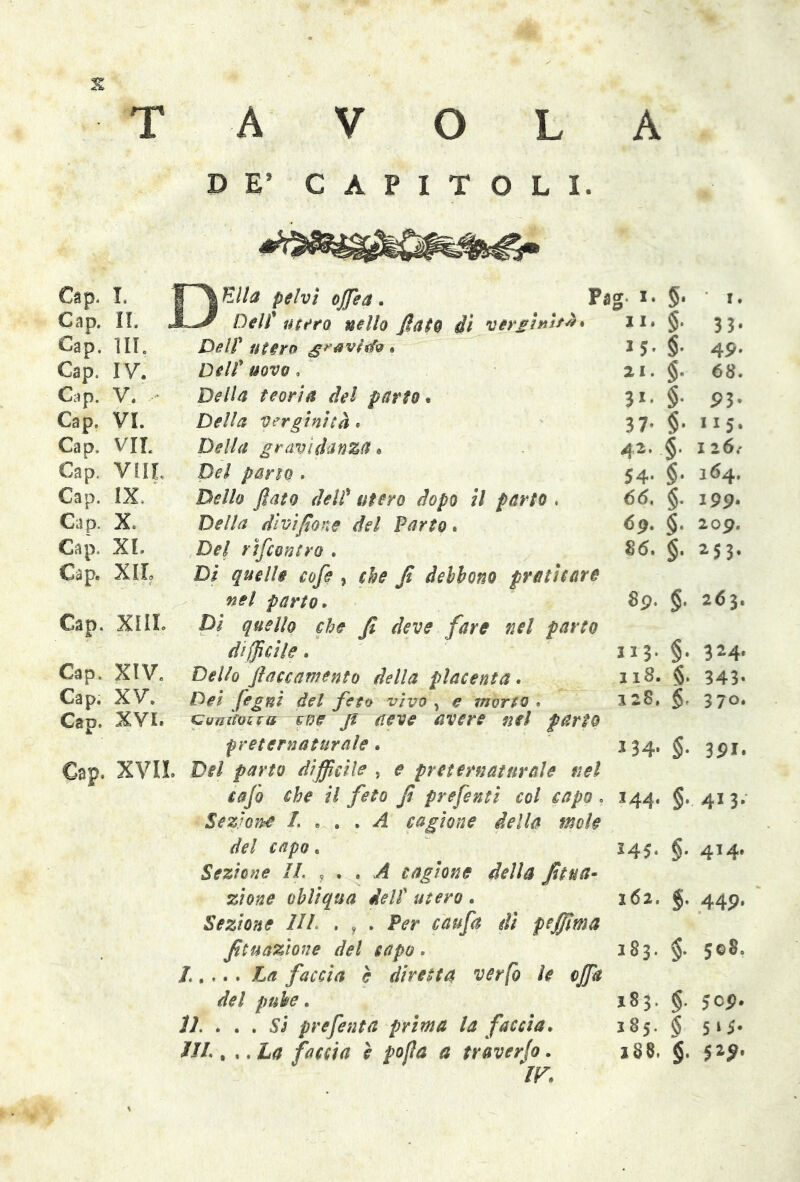 x
TAVOLA
DE' CAPITOLI.
Cap. I. DElla pelvi oſſea. Pag. 1. §. 1.
Cap. II. Dell' utero nello ſtato di verginità. 11. §. 33.
Cap. III. Dell' utero gravido. 15. §. 49.
Cap. IV. Dell' uovo. 21. §. 68.
Cap. V. Della teoria del parto. 31. §. 93.
Cap. VI. Della verginità. 37. §. 115.
Cap. VII. Della gravidanza. 42. §. 126.
Cap. VIII. Del parto. 54. §. 164.
Cap. IX. Dello ſtato dell' utero dopo il parto. 66. §. 199.
Cap. X. Della diviſione del Parto. 69. §. 209.
Cap. XI. Del riſcontro. 86. §. 253.
Cap. XII. Di quelle coſe, che ſi debbono praticare
nel parto. 89. §. 263.
Cap. XIII. Di quello che ſi deve fare nel parto
difficile. 113. §. 324.
Cap. XIV. Dello ſtaccamento della placenta. 118. §. 343.
Cap. XV. Dei ſegni del feto vivo, e morto. 128. §. 370.
Cap. XVI. Condotta che ſi deve avere nel parto
preternaturale. 134. §. 391.
Cap. XVII. Del parto difficile, e preternaturale nel
caſo che il feto ſi preſenti col capo. 144. §. 413.
Sezione I. . . . A cagione della mole
del capo. 145. §. 414.
Sezione II. . . . A cagione della ſitua-
zione obliqua dell' utero. 162. §. 449.
Sezione III. . . . Per cauſa di peſſima
ſituazione del capo. 183. §. 508.
I. . . . . La faccia è diretta verſo le oſſa
del pube. 183. §. 509.
II. . . . Si preſenta prima la faccia. 185. § 515.
III. . . . La faccia è poſta a traverſo. 188. §. 529.
IV.